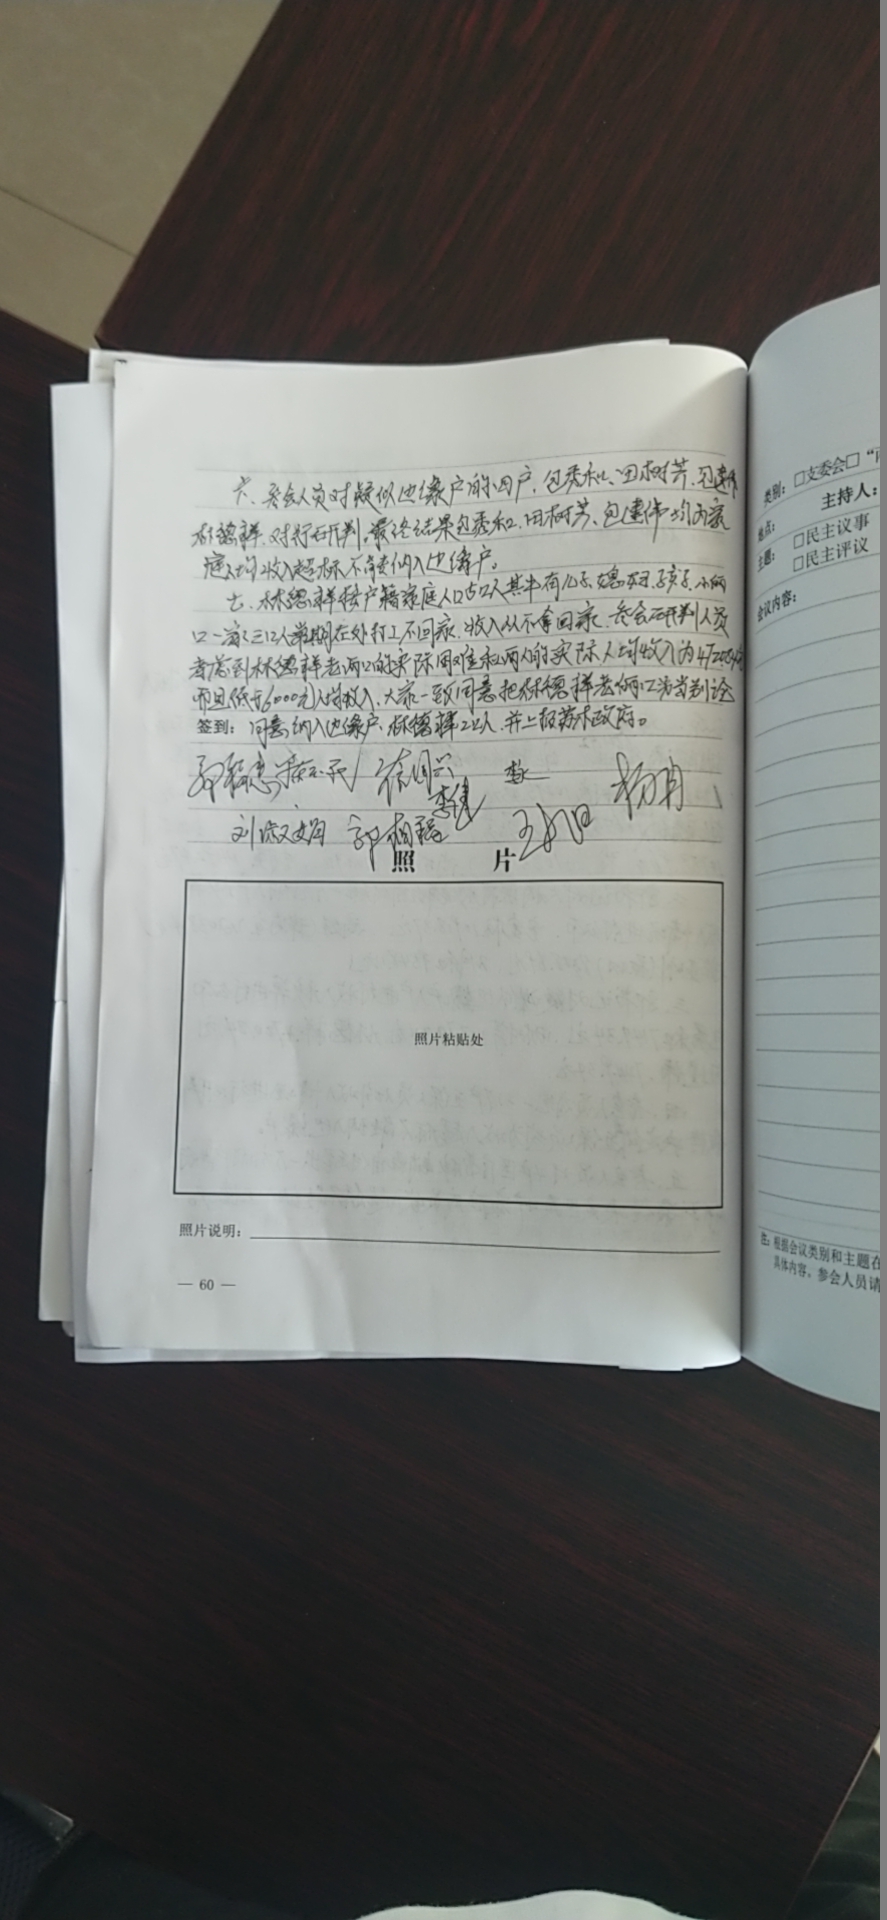 六、参会人员对疑似边缘户的四户，包秀和、田树芳、包建伟
林德祥，对行研判，最终结果包秀和、田树芳、包建伟均因家
庭人均收入超标不能纳入边缘户。
七、林德祥按户籍家庭人口5口人其中有儿子、媳妇、孩子、小两
口一家三口人常期在外打工不回家，收入从不拿回家，参会研判人员
考虑到林德祥老两口的实际困难和两人的实际人均收入为
而且低于6000元人均收入，大家一致同意把林德祥老俩口另当别论
签到： 同意纳入边缘户，林德祥2口人，并上报苏木政府。
徐国兴 杨明
刘淑娟 郭柏强 李健
照 片
照片粘贴处
照片说明：
— 60 —
类别：□支委会□“
主持人：
地点：
主题：□民主议事
□民主评议
会议内容：
注：根据会议类别和主题在
具体内容。参会人员请